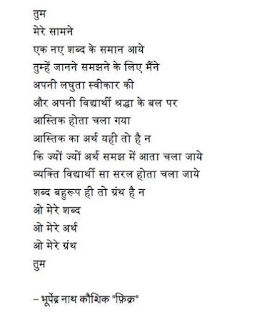 तुम
मेरे सामने
एक नए शब्द के समान आये
तुम्हें जानने समझने के लिए मैंने
अपनी लघुता स्वीकार की
और अपनी विद्यार्थी श्रद्धा के बल पर
आस्तिक होता चला गया
आस्तिक का अर्थ यही तो है न
कि ज्यों ज्यों अर्थ समझ में आता चला जाये
व्यक्ति विद्यार्थी सा सरल होता चला जाये
शब्द बहुरूप ही तो ग्रंथ है न
ओ मेरे शब्द
ओ मेरे अर्थ
ओ मेरे ग्रंथ
तुम
– भूपेंद्र नाथ कौशिक "फ़िक्र"